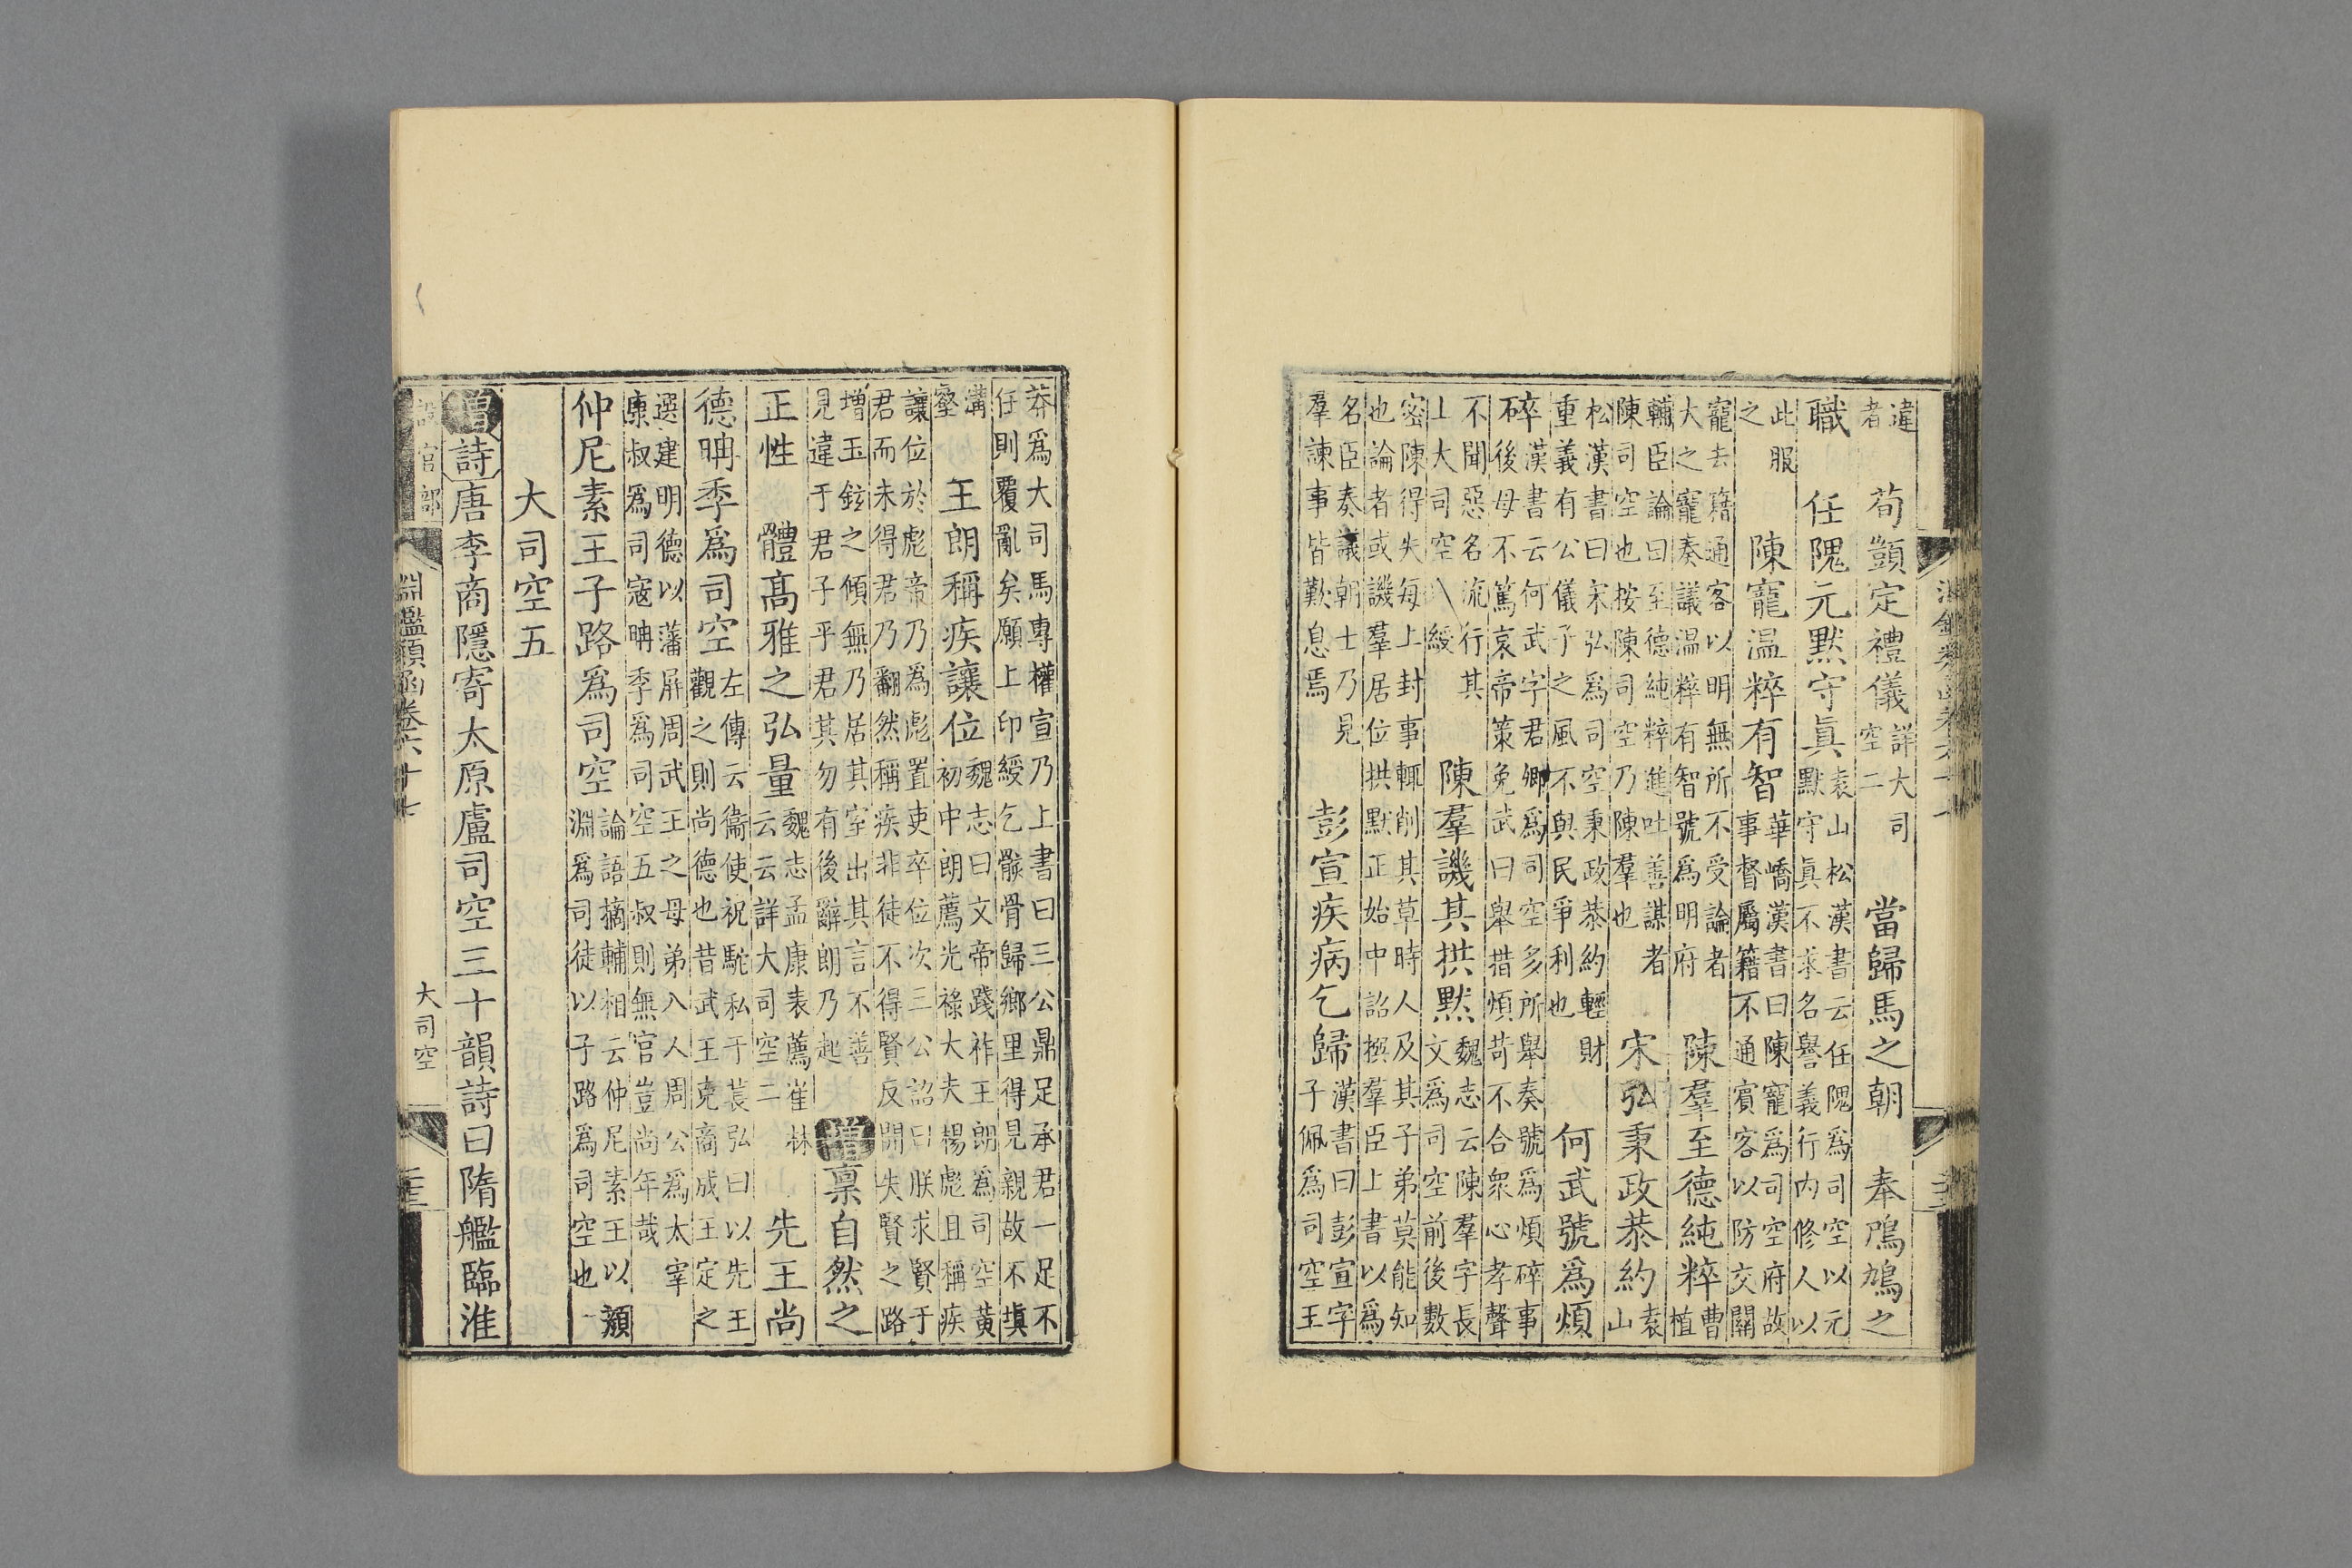 違者　荀顗定禮儀詳大司空二　當歸馬之朝　奉鳲鳩之
職　任隗元黙守眞袁山松漢書云任隗爲司空以元默守眞不求名譽義行内修人以
此服之　陳寵温粹有智華嶠漢書曰陳寵爲司空府故事督屬籍不通賓客以防交關
寵去籍通客以明無所不受論者大之寵奏議温粹有智號爲明府　陳羣至德純粹曹植
輔臣論曰至德純粹進吐善謀者陳司空也按陳司空乃陳羣也　宋弘秉政恭約袁山
松漢書曰宋弘爲司空秉政恭約輕財重義有公儀子之風不與民爭利也　何武號爲煩
碎漢書云何武字君卿爲司空多所舉奏號爲煩碎事後母不篤哀帝策免武曰舉措煩苛不合衆心孝聲
不聞惡名流行其上大司空綬　陳羣譏其拱黙魏志云陳羣字長文爲司空前後數
密陳得失每上封事輒削其草時人及其子弟莫能知也論者或譏羣居位拱默正始中詔撰羣臣上書以爲
名臣奏議朝士乃見羣諫事皆歎息焉　彭宣疾病乞歸漢書曰彭宣字子佩爲司空王
莽爲大司馬專權宣乃上書曰三公鼎足承君一足不任則覆亂矣願上印綬乞骸骨歸鄉里得見親故不塡
溝壑　王朗稱疾讓位魏志曰文帝踐祚王朗爲司空黃初中朗薦光祿大夫楊彪且稱疾
讓位於彪帝乃爲彪置吏卒位次三公詔曰朕求賢于君而未得君乃翻然稱疾非徒不得賢反開失賢之路
增玉鉉之傾無乃居其室出其言不善見違于君子乎君其勿有後辭朗乃起　增稟自然之
正性　體高雅之弘量魏志孟康表薦崔林云云詳大司空二　先王尚
德聃季爲司空左傳云衞使祝駝私于萇弘曰以先王觀之則尚德也昔武王克商成王定之
選建明德以藩屏周武王之母弟八人周公爲太宰康叔爲司寇聃季爲司空五叔則無官豈尚年哉
仲尼素王子路爲司空論語摘輔相云仲尼素王以顏淵爲司徒以子路爲司空也
大司空五
增詩唐李商隱寄太原盧司空三十韻詩曰隋艦臨淮
設官部　淵鑑類函卷六十七　大司空